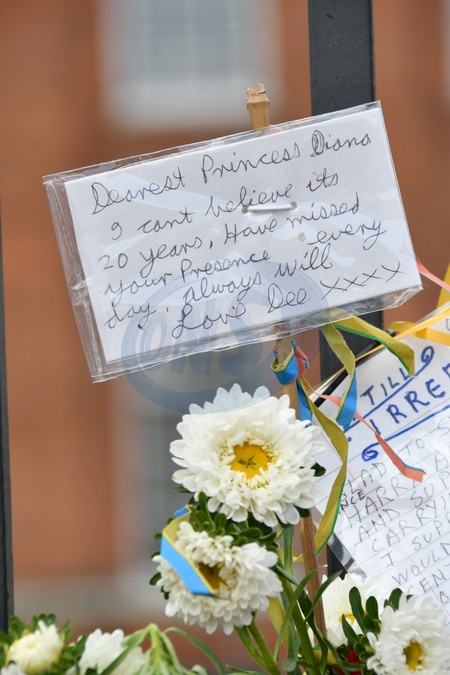 Dearest Princess Diana
I cant believe its
20 years, Have missed
your Presence every
day, always will
Love Dee xxxx
ONS
TILL
RRE
6
LAD TO S
NCE HARRA
AND SUP
CARRYI
I SUP
WOULD
EN